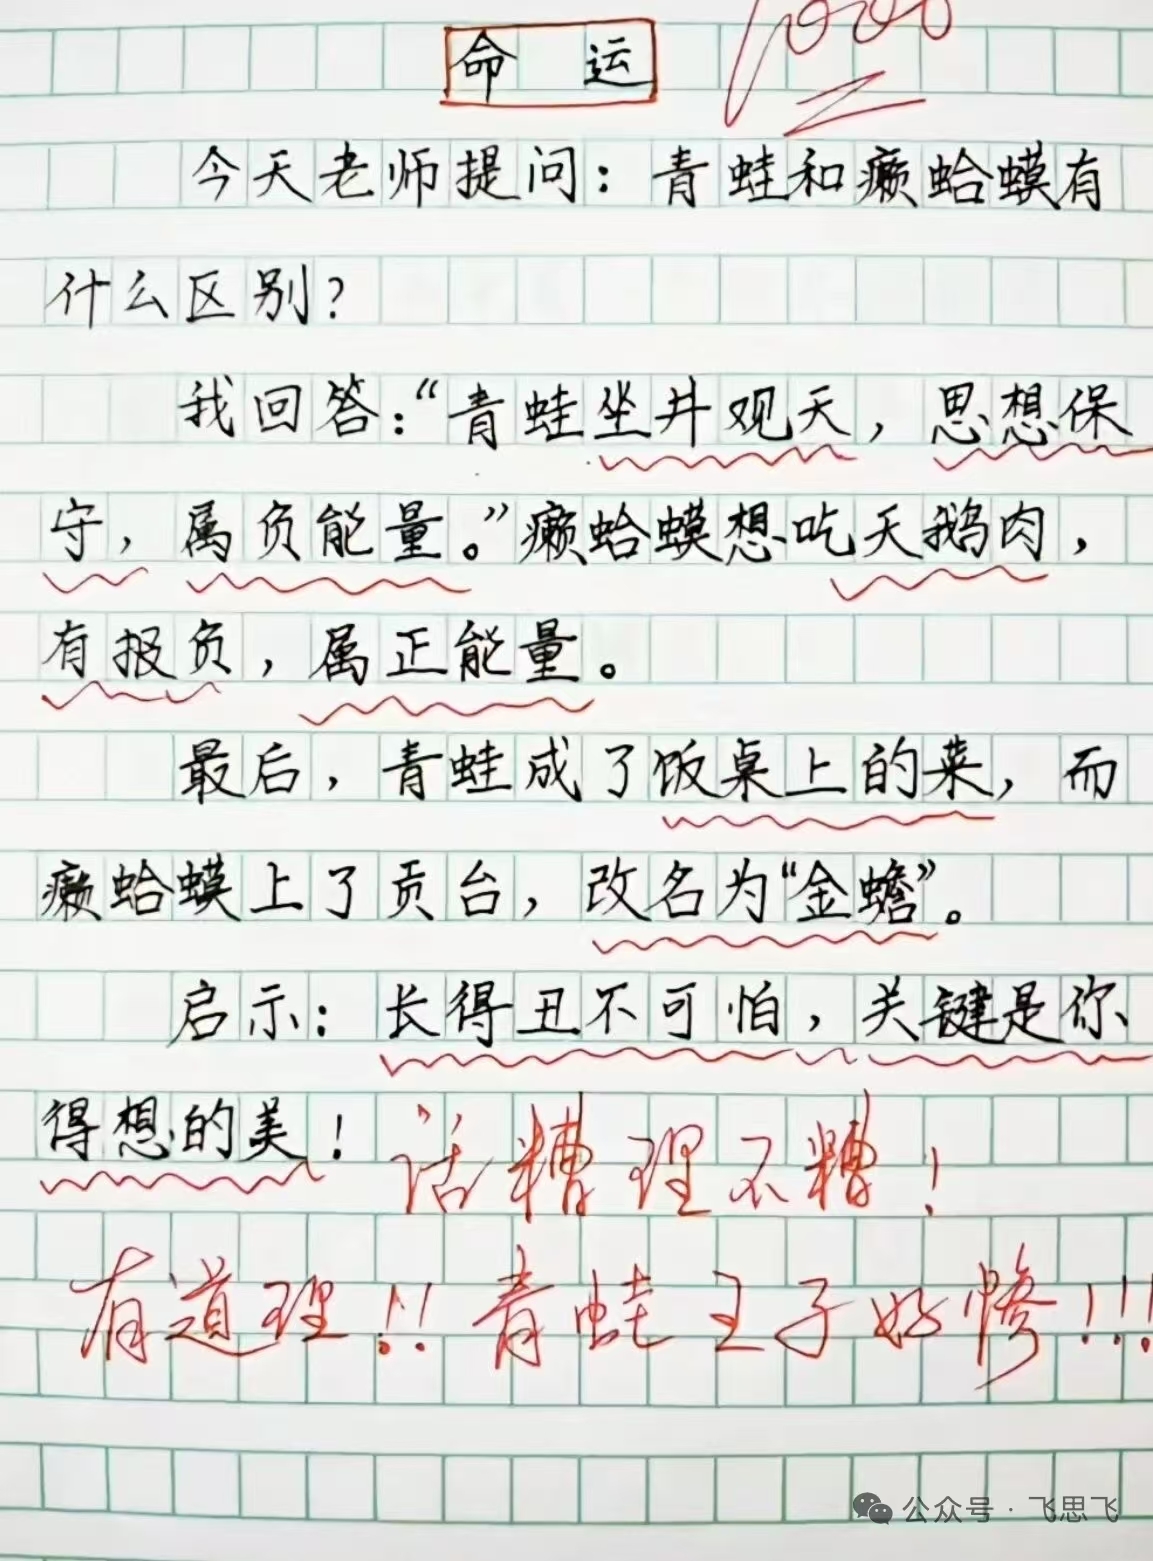 命 运
今天老师提问：青蛙和癞蛤蟆有
什么区别？
我回答：“青蛙坐井观天，思想保
守，属负能量。”癞蛤蟆想吃天鹅肉，
有报负，属正能量。
最后，青蛙成了饭桌上的菜，而
癞蛤蟆上了贡台，改名为“金蟾”。
启示：长得丑不可怕，关键是你
得想的美！
话糟理不糟！
有道理！！青蛙王子好惨！！！
公众号·飞思飞